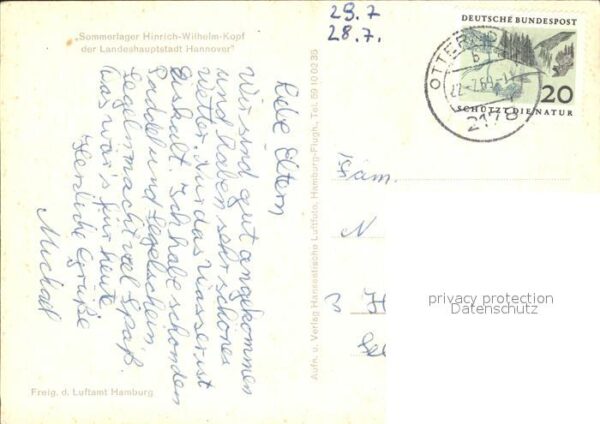 „Sommerlager Hinrich-Wilhelm-Kopf
der Landeshauptstadt Hannover"
Liebe Eltern
Wir sind gut angekommen
und haben sehr schönes
Wetter. Nur das Wasser ist
Eiskalt. Ich habe schon den
Paddel und Segelschein
Segeln macht viel Spaß.
Das war's für heute
Herzliche Grüße
Michael
Freig. d. Luftamt Hamburg
Aufn. u. Verlag Hanseatische Luftfoto, Hamburg-Flugh., Tel. 59 10 02 36
29.7
28.7.
DEUTSCHE BUNDESPOST
20
SCHÜTZT DIE NATUR
2178
Fam.
N
3 H
privacy protection
Datenschutz